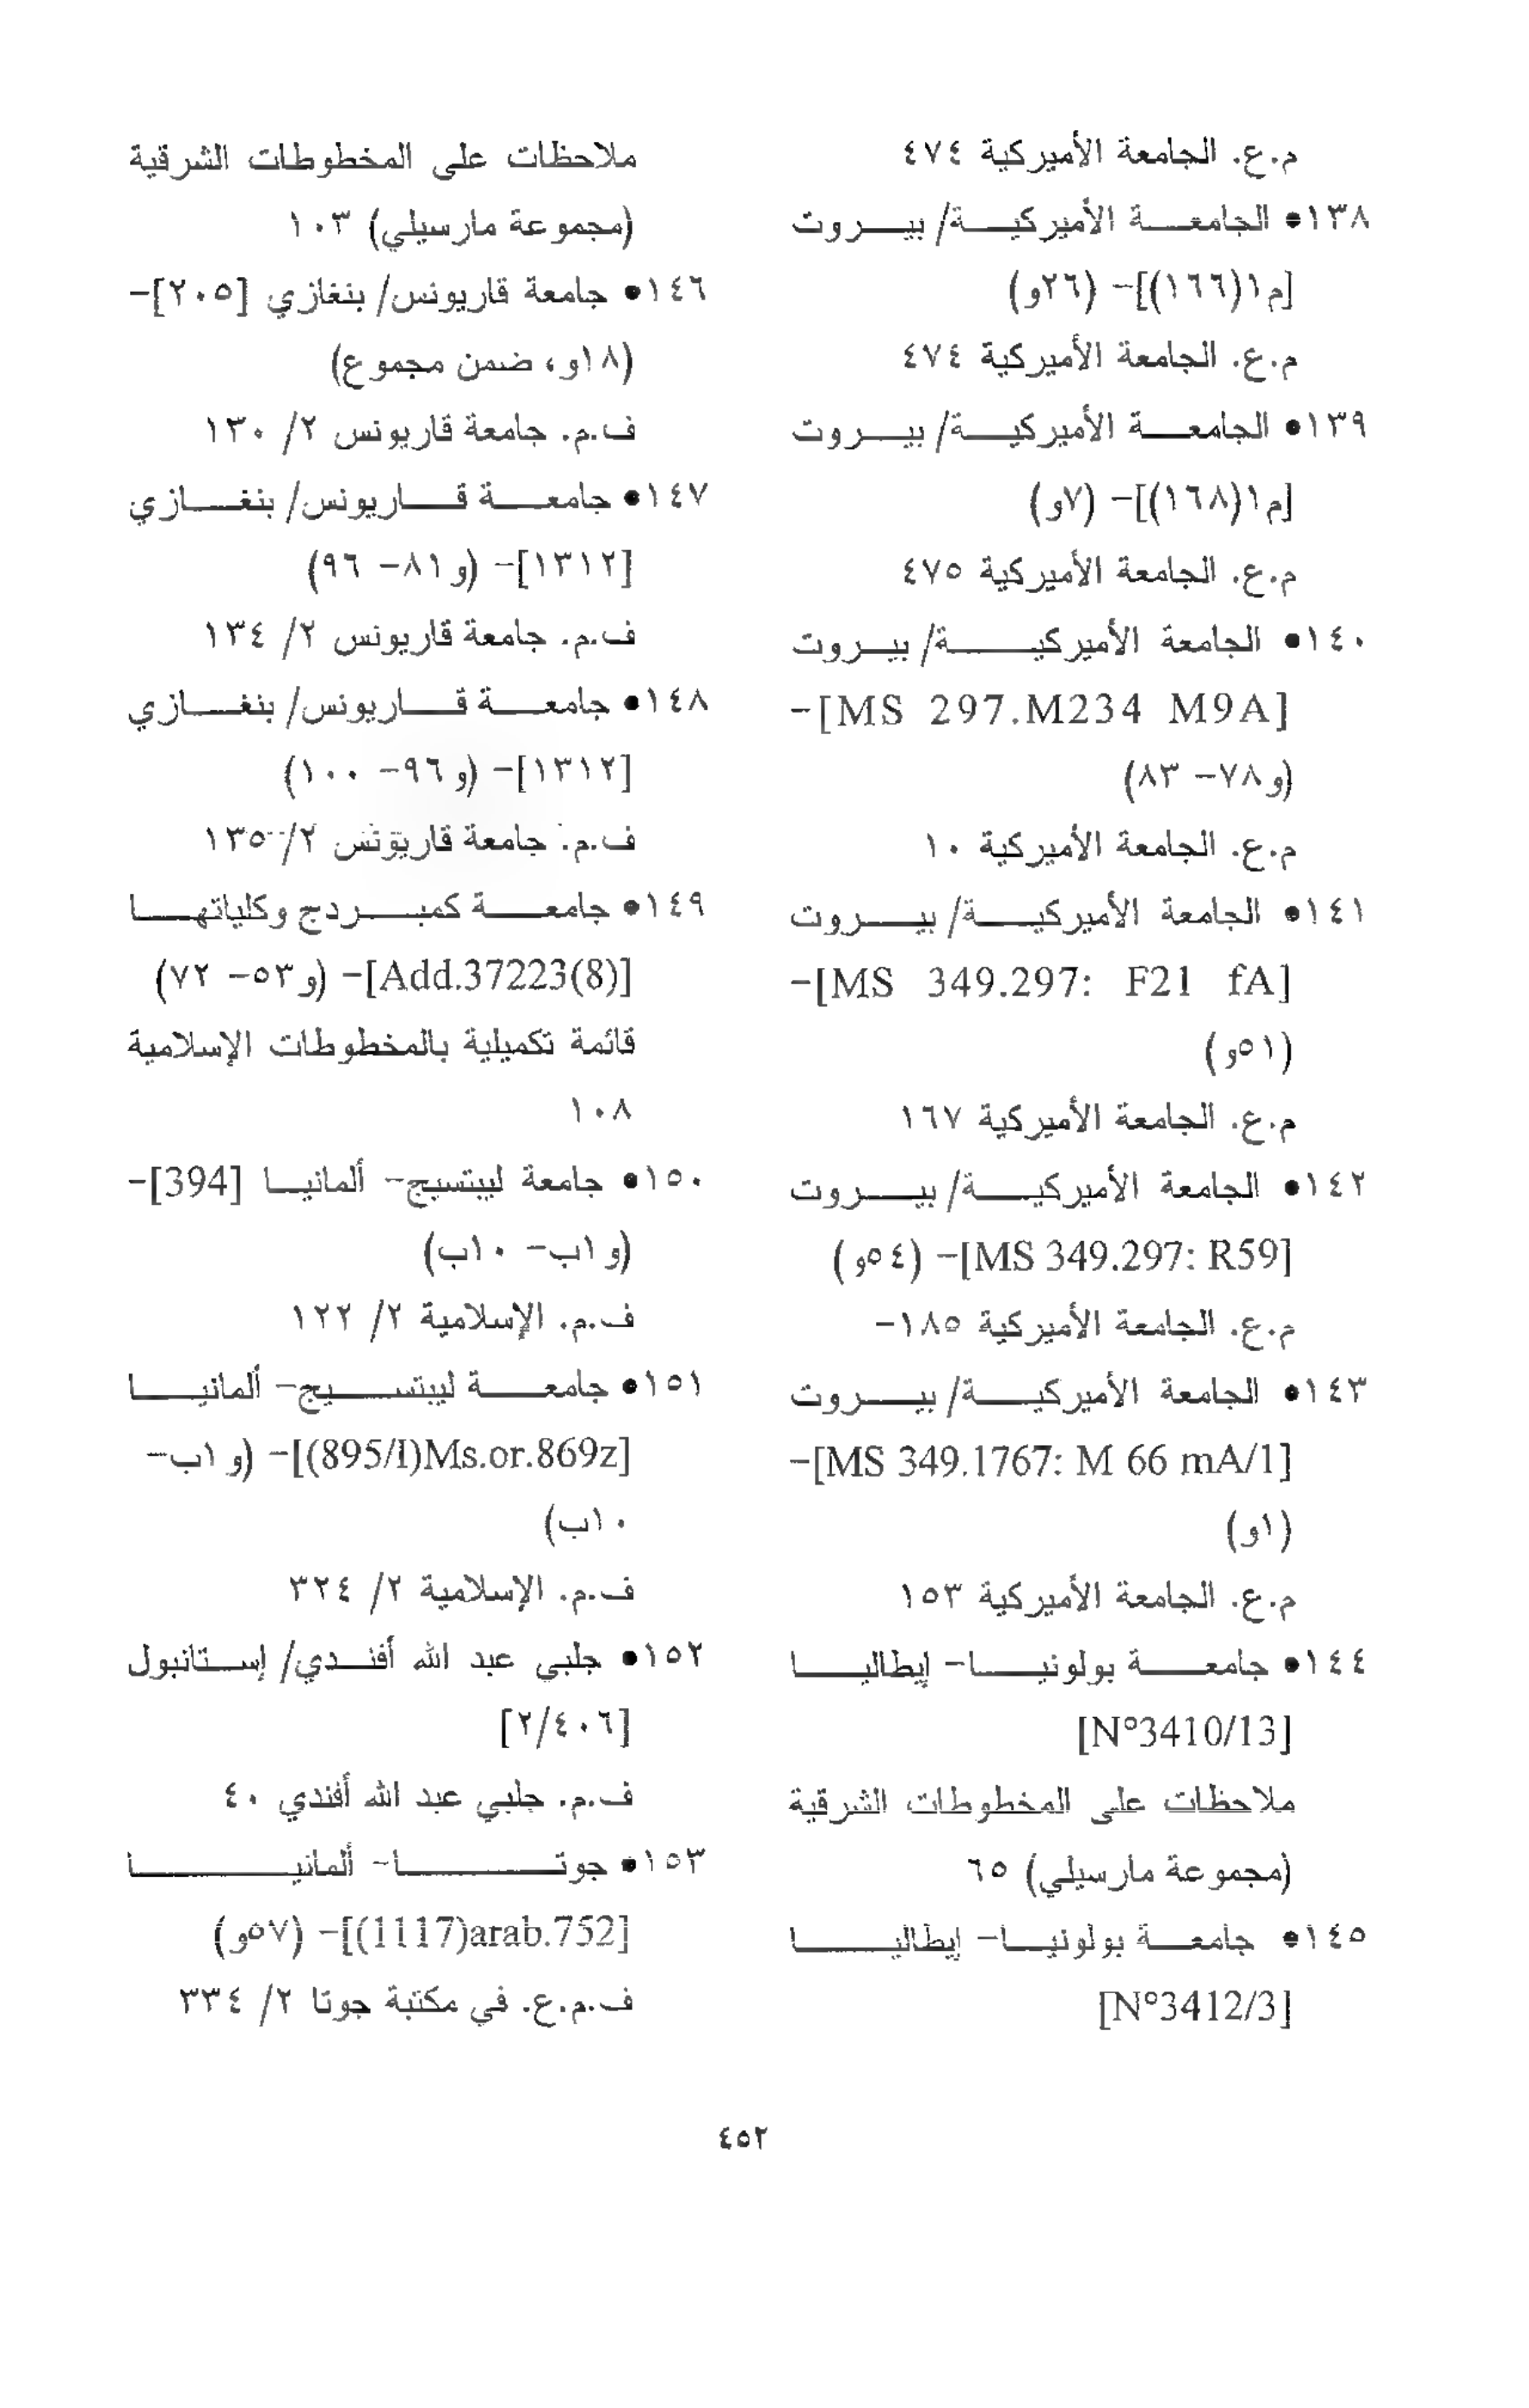 م.ع. الجامعة الأميركية ٤٧٤
١٣٨• الجامعة الأميركية/ بيروت
[م١(١٦٦)]- (٢٦و)
م.ع. الجامعة الأميركية ٤٧٤
١٣٩• الجامعة الأميركية/ بيروت
[م١(١٦٨)]- (٧و)
م.ع. الجامعة الأميركية ٤٧٥
١٤٠• الجامعة الأميركية/ بيروت
[MS 297.M234 M9A]-
(و٧٨- ٨٣)
م.ع. الجامعة الأميركية ١٠
١٤١• الجامعة الأميركية/ بيروت
[MS 349.297: F21 fA]-
(٥١و)
م.ع. الجامعة الأميركية ١٦٧
١٤٢• الجامعة الأميركية/ بيروت
[MS 349.297: R59]- (٥٤و)
م.ع. الجامعة الأميركية ١٨٥-
١٤٣• الجامعة الأميركية/ بيروت
[MS 349.1767: M 66 mA/1]-
(١و)
م.ع. الجامعة الأميركية ١٥٣
١٤٤• جامعة بولونيا- إيطاليا
[N°3410/13]
ملاحظات على المخطوطات الشرقية
(مجموعة مارسيلي) ٦٥
١٤٥• جامعة بولونيا- إيطاليا
[N°3412/3]
ملاحظات على المخطوطات الشرقية
(مجموعة مارسيلي) ١٠٣
١٤٦• جامعة قاريونس/ بنغازي [٢٠٥]-
(١٨و، ضمن مجموع)
ف.م. جامعة قاريونس ٢/ ١٣٠
١٤٧• جامعة قاريونس/ بنغازي
[١٣١٢]- (و٨١- ٩٦)
ف.م. جامعة قاريونس ٢/ ١٣٤
١٤٨• جامعة قاريونس/ بنغازي
[١٣١٢]- (و٩٦- ١٠٠)
ف.م. جامعة قاريونس ٢/ ١٣٥
١٤٩• جامعة كمبردج وكلياتها
[Add.37223(8)]- (و٥٣- ٧٢)
قائمة تكميلية بالمخطوطات الإسلامية
١٠٨
١٥٠• جامعة ليبتسيج- ألمانيا [394]-
(و١ب- ١٠ب)
ف.م. الإسلامية ٢/ ١٢٢
١٥١• جامعة ليبتسيج- ألمانيا
[(895/I)Ms.or.869z]- (و١ب-
١٠ب)
ف.م. الإسلامية ٢/ ٣٢٤
١٥٢• جلبي عبد الله أفندي/ إستانبول
[٢/٤٠٦]
ف.م. جلبي عبد الله أفندي ٤٠
١٥٣• جوتا- ألمانيا
[(1117)arab.752]- (٥٧و)
ف.م.ع. في مكتبة جوتا ٢/ ٣٣٤
٤٥٢